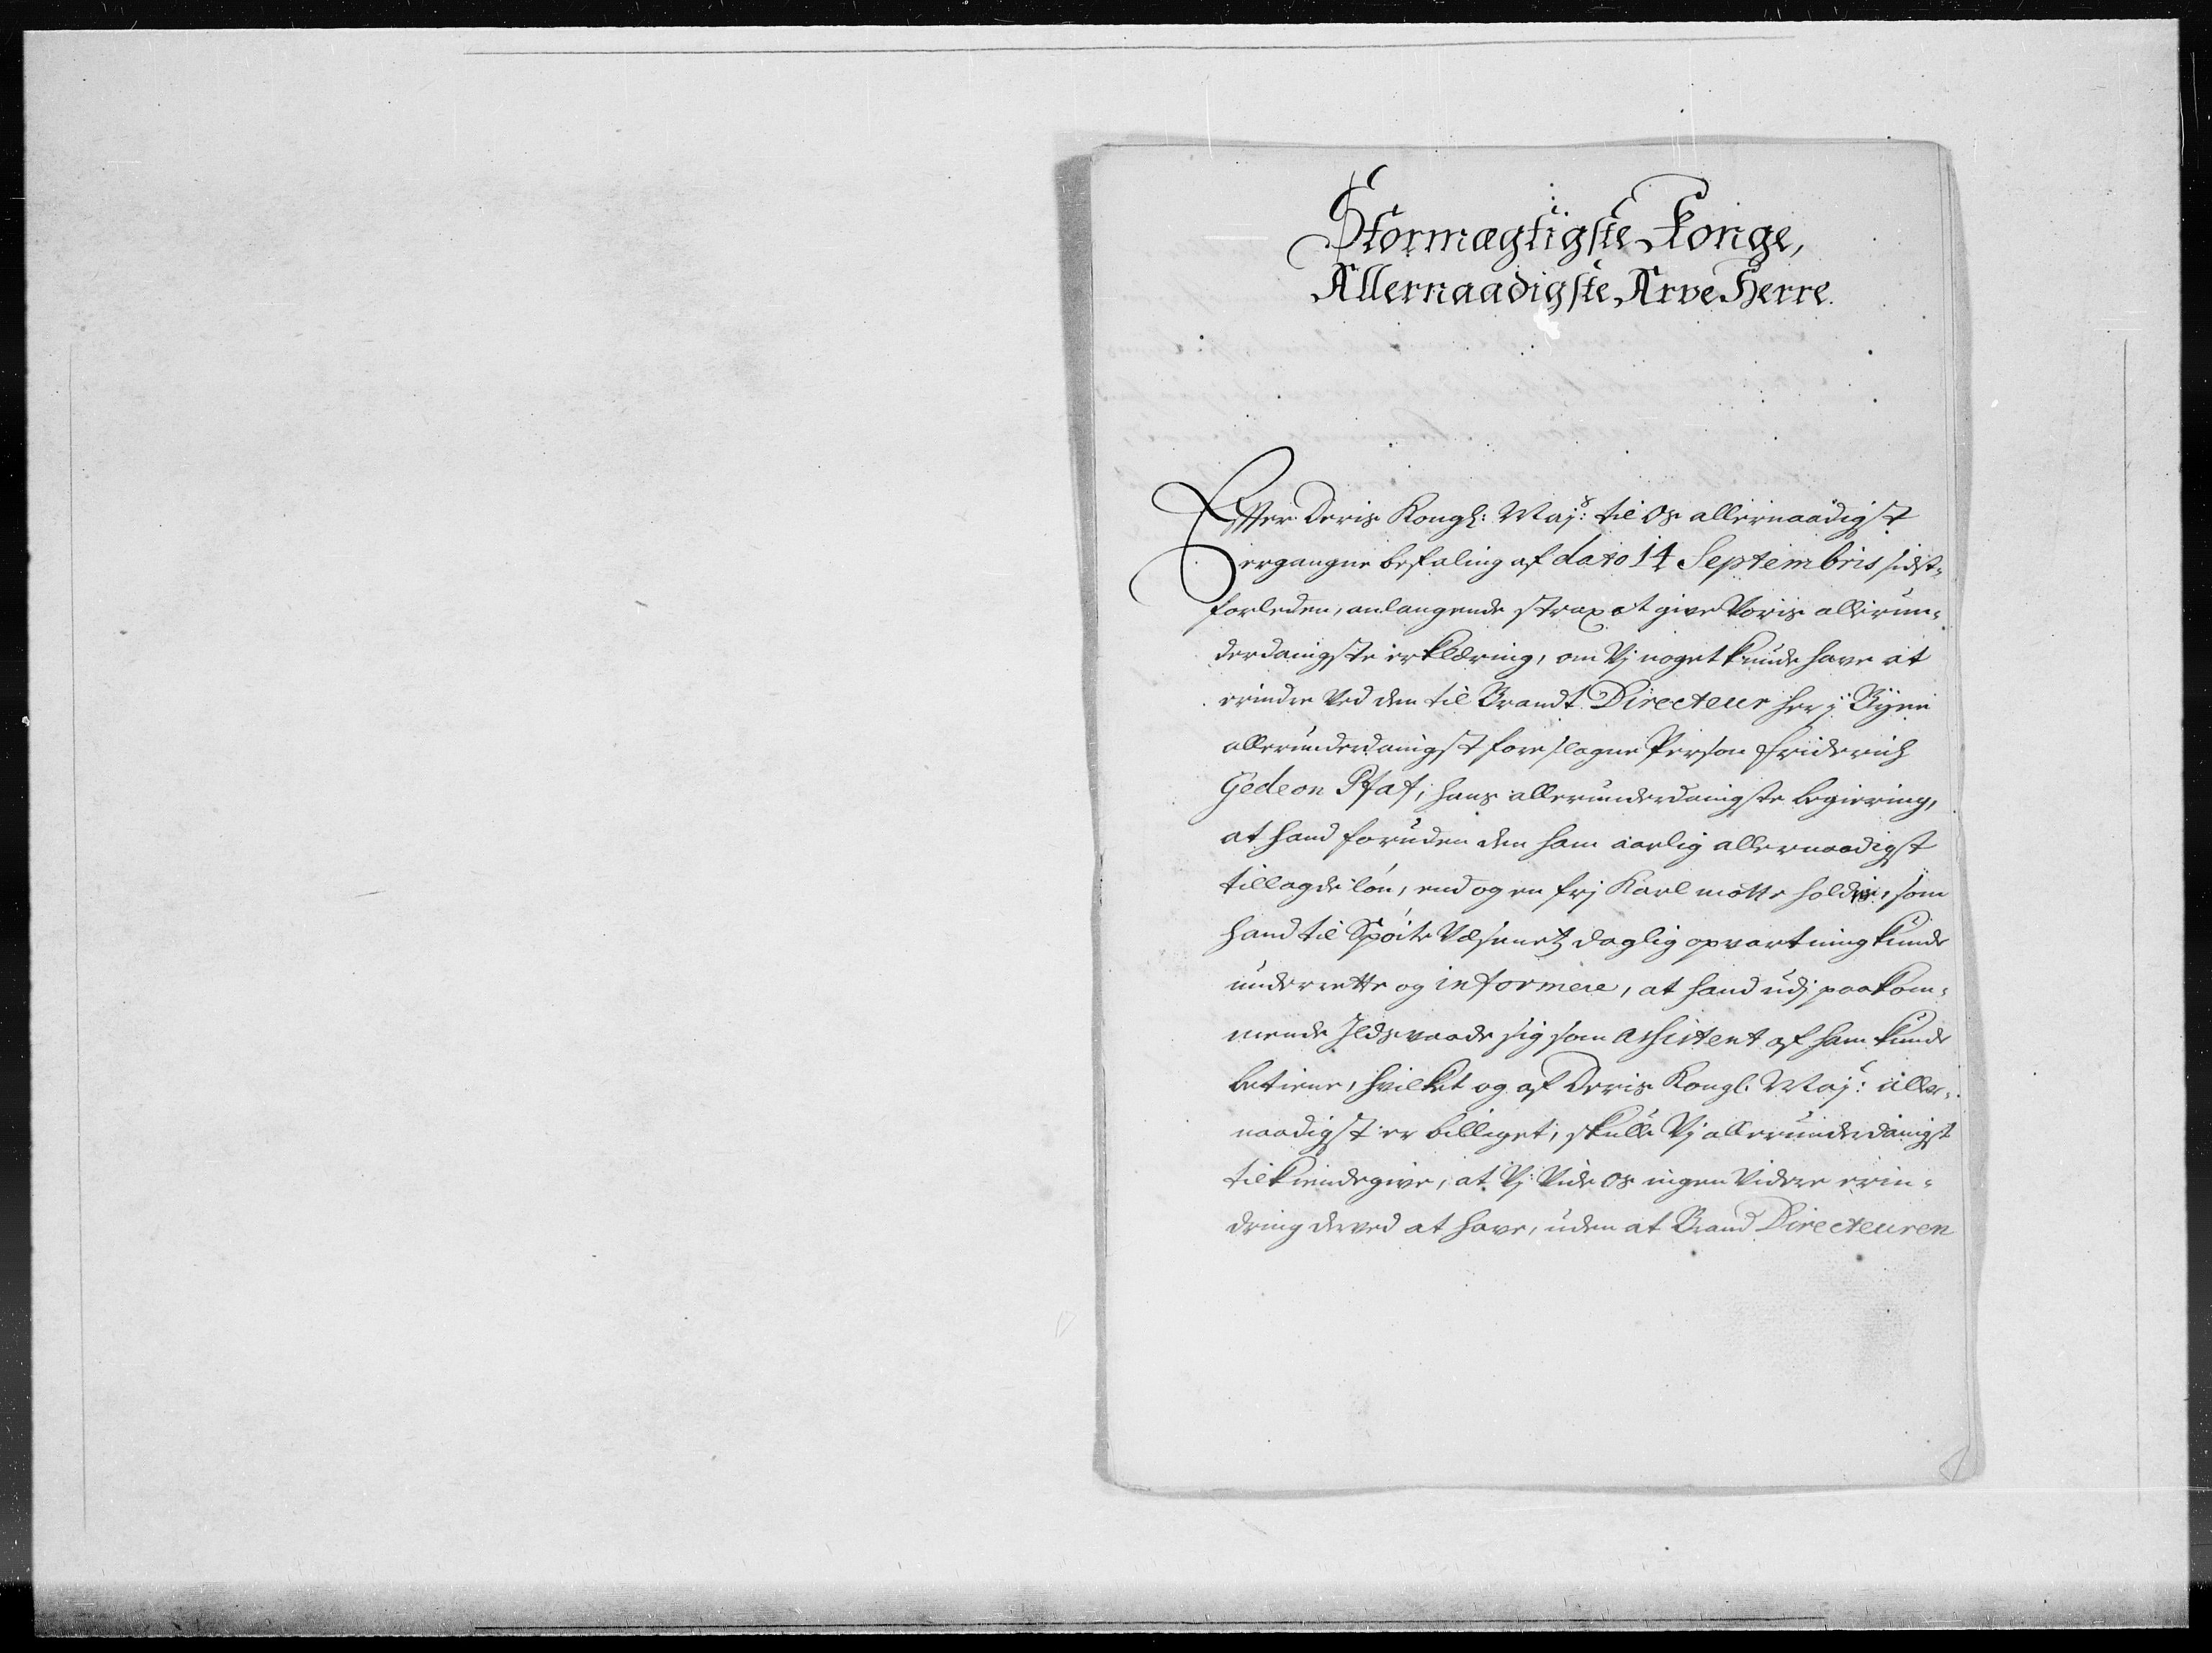 Stormægtigste Konge,
Allernaadigste Arve Herre.
Effter Deris Kongl: Maj:s til Os allernaadigst
ergangne befaling af dato 14 Septembris sidst¬
forleden, anlangende strax at give Voris allerun¬
derdanigste erklæring, om Vj noget kunde have at
erindre Ved den til Brandt Directeur her j Byen
allerunderdanigst foreslagne Person Friderich
Gedeon Pfaf, hans allerunderdanigste begiering,
at hand foruden den ham aarlig allernaadigst
tillagde løn, end og en frj Karl motte holde, som
hand til Spøite Væsenetz daglig opvartning kunde
underrette og informere, at hand udj paakom¬
mende Jldsvaade sig som assistent af ham kunde
betiene, hvilket og af Deris Kongl. Maj: aller¬
naadigst er billiget, skulle Vj allerunderdanigst
tilkiendegive, at Vj Vide os ingen Videre erin¬
dring derved at have, uden at Brand Directeuren